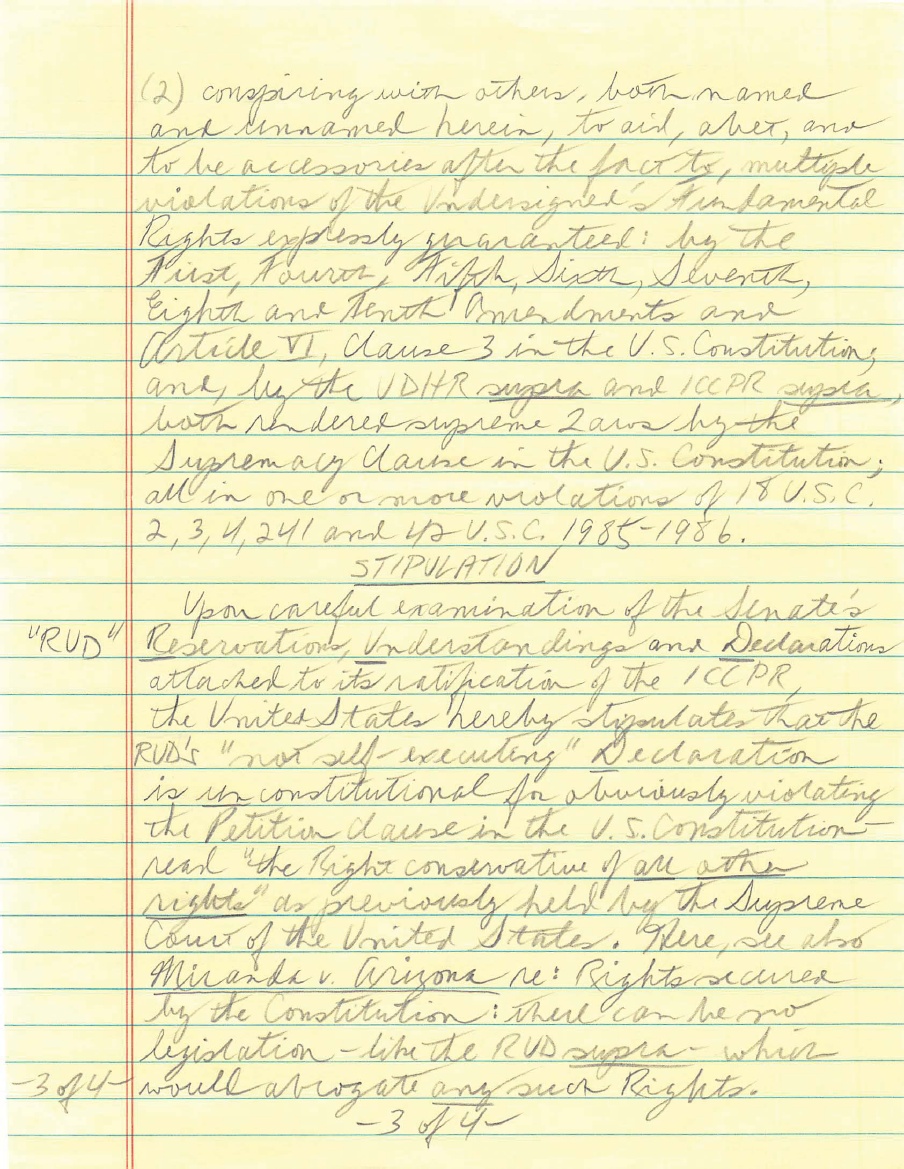 (2) conspiring with others, both named
and unnamed herein, to aid, abet, and
to be accessories after the fact to, multiple
violations of the Undersigned's Fundamental
Rights expressly guaranteed: by the
First, Fourth, Fifth, Sixth, Seventh,
Eighth and Tenth Amendments and
Article VI, Clause 3 in the U.S. Constitution;
and, by the UDHR supra and ICCPR supra,
both rendered supreme Laws by the
Supremacy Clause in the U.S. Constitution;
all in one or more violations of 18 U.S.C.
2, 3, 4, 241 and 42 U.S.C. 1985-1986.
STIPULATION
Upon careful examination of the Senate's
"RUD" Reservations, Understandings and Declarations
attached to its ratification of the ICCPR,
the United States hereby stipulates that the
RUD's "not self-executing" Declaration
is unconstitutional for obviously violating
the Petition Clause in the U.S. Constitution -
read "the Right conservative of all other
rights" as previously held by the Supreme
Court of the United States. Here, see also
Miranda v. Arizona re: Rights secured
by the Constitution: there can be no
legislation - like the RUD supra - which
-3 of 4- would abrogate any such Rights.
-3 of 4-